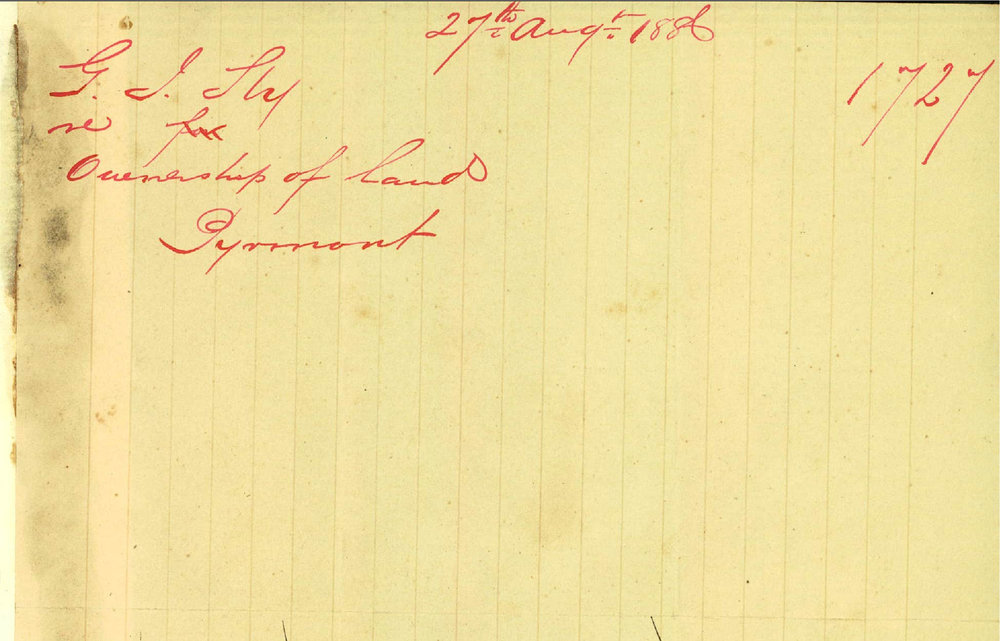 27th Augt 1886
1727
G. J. Sly
re
Ownership of land
Pyrmont